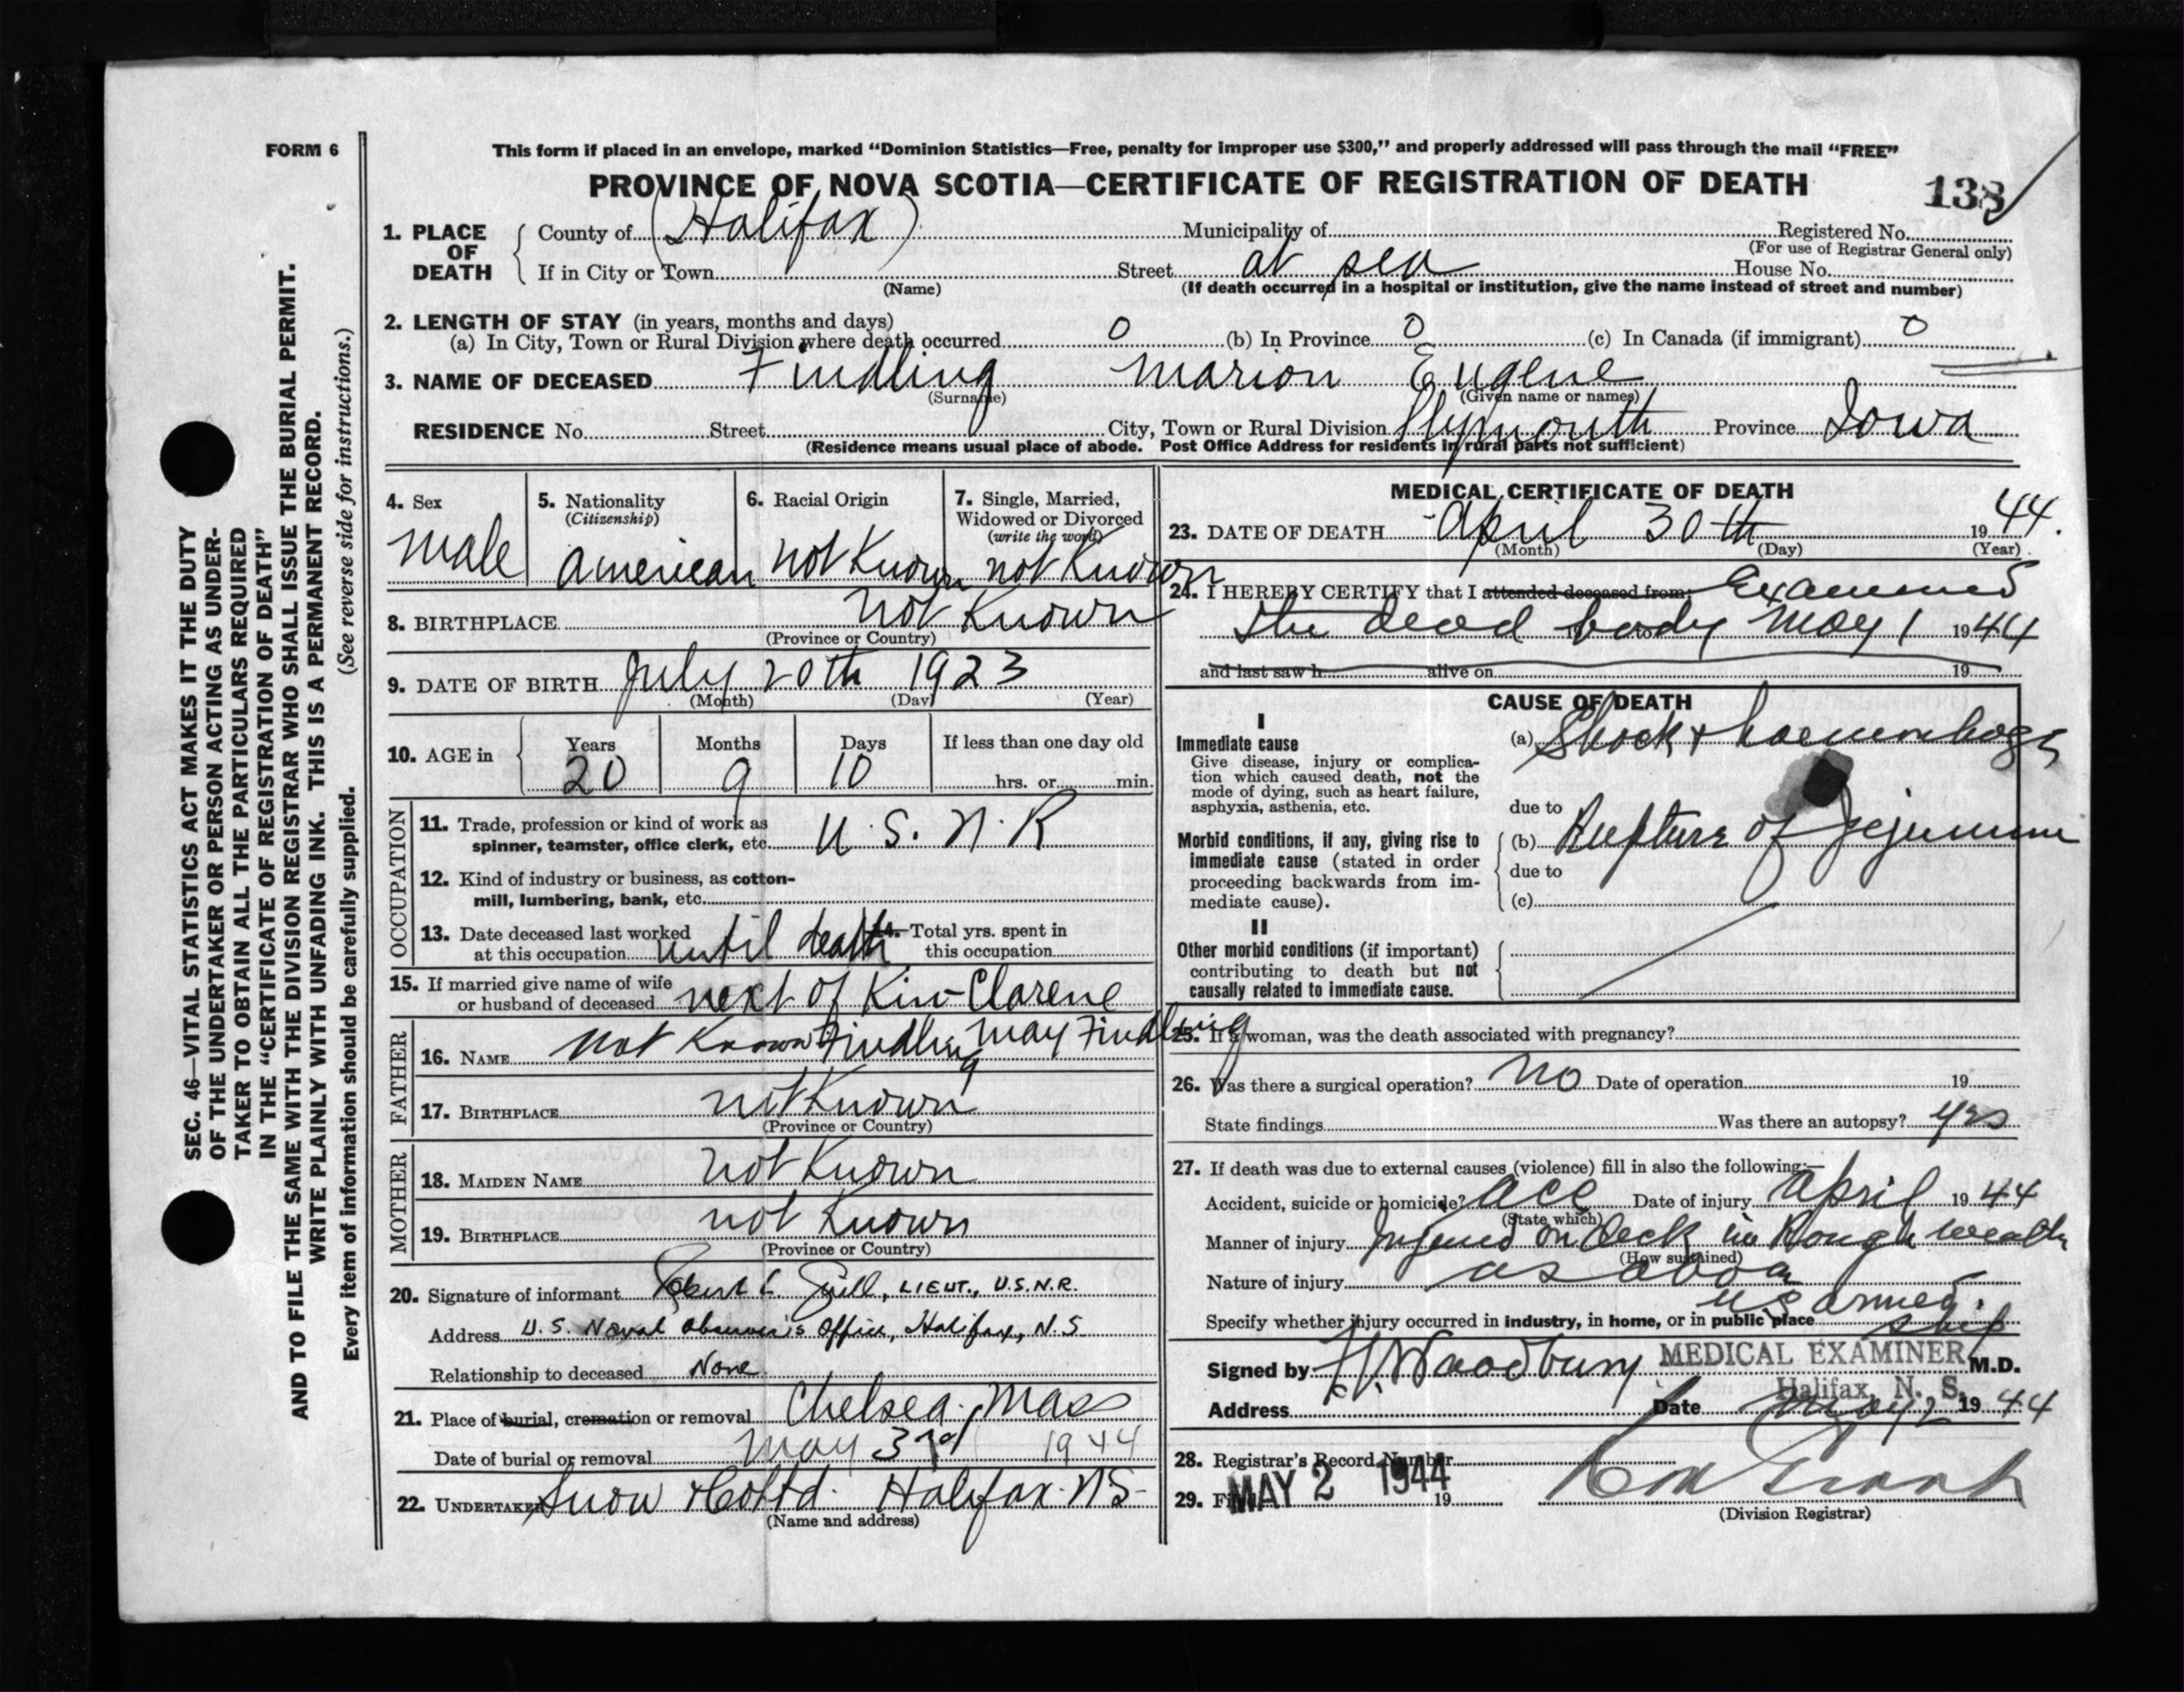 FORM 6
This form if placed in an envelope, marked “Dominion Statistics—Free, penalty for improper use $300,” and properly addressed will pass through the mail “FREE”
PROVINCE OF NOVA SCOTIA—CERTIFICATE OF REGISTRATION OF DEATH
138
1. PLACE OF DEATH
County of (Halifax) Municipality of Registered No.
(For use of Registrar General only)
If in City or Town Street at sea House No.
(Name) (If death occurred in a hospital or institution, give the name instead of street and number)
2. LENGTH OF STAY (in years, months and days)
(a) In City, Town or Rural Division where death occurred 0 (b) In Province 0 (c) In Canada (if immigrant) 0
3. NAME OF DECEASED Findling Marion Eugene
(Surname) (Given name or names)
RESIDENCE No. Street City, Town or Rural Division Plymouth Province Iowa
(Residence means usual place of abode. Post Office Address for residents in rural parts not sufficient)
SEC. 46—VITAL STATISTICS ACT MAKES IT THE DUTY
OF THE UNDERTAKER OR PERSON ACTING AS UNDER-
TAKER TO OBTAIN ALL THE PARTICULARS REQUIRED
IN THE “CERTIFICATE OF REGISTRATION OF DEATH”
AND TO FILE THE SAME WITH THE DIVISION REGISTRAR WHO SHALL ISSUE THE BURIAL PERMIT.
WRITE PLAINLY WITH UNFADING INK. THIS IS A PERMANENT RECORD.
Every item of information should be carefully supplied. (See reverse side for instructions.)
4. Sex
male
5. Nationality
(Citizenship)
American
6. Racial Origin
not Known
7. Single, Married,
Widowed or Divorced
(write the word)
not Known
8. BIRTHPLACE not Known
(Province or Country)
9. DATE OF BIRTH July 20th 1923
(Month) (Day) (Year)
10. AGE in
Years Months Days If less than one day old
20 9 10 hrs. or min.
OCCUPATION
11. Trade, profession or kind of work as
spinner, teamster, office clerk, etc. U.S.N.R
12. Kind of industry or business, as cotton-
mill, lumbering, bank, etc.
13. Date deceased last worked
at this occupation until death
14. Total yrs. spent in
this occupation
15. If married give name of wife
or husband of deceased next of Kin-Clarene
May Findling
FATHER
16. NAME not Known Findling
17. BIRTHPLACE not Known
(Province or Country)
MOTHER
18. MAIDEN NAME not Known
19. BIRTHPLACE not Known
(Province or Country)
20. Signature of informant Robert L. LIEUT., U.S.N.R.
Address U.S. Naval Observer's Office, Halifax, N.S.
Relationship to deceased None
21. Place of burial, cremation or removal Chelsea, Mass
Date of burial or removal May 3rd 1944
22. UNDERTAKER Snow & Co Ltd. Halifax N S
(Name and address)
MEDICAL CERTIFICATE OF DEATH
23. DATE OF DEATH April 30th 1944.
(Month) (Day) (Year)
24. I HEREBY CERTIFY that I attended deceased from: Examined
the dead body May 1 1944
and last saw h alive on 19
CAUSE OF DEATH
I
Immediate cause
Give disease, injury or complica-
tion which caused death, not the
mode of dying, such as heart failure,
asphyxia, asthenia, etc.
(a) Shock & haemorrhage
due to
Morbid conditions, if any, giving rise to
immediate cause (stated in order
proceeding backwards from im-
mediate cause).
(b) Rupture of jejunum
due to
(c)
II
Other morbid conditions (if important)
contributing to death but not
causally related to immediate cause.
25. If a woman, was the death associated with pregnancy?
26. Was there a surgical operation? No Date of operation 19
State findings Was there an autopsy? yes
27. If death was due to external causes (violence) fill in also the following:—
Accident, suicide or homicide? acc Date of injury April 1944
(State which)
Manner of injury Injured on deck in Rough weath
(How sustained)
Nature of injury as above
Specify whether injury occurred in industry, in home, or in public place US armed ship
Signed by Woodbury MEDICAL EXAMINER M.D.
Halifax, N. S.
Address Date May 2 1944
28. Registrar's Record Number
29. Filed MAY 2 1944 19
(Division Registrar)